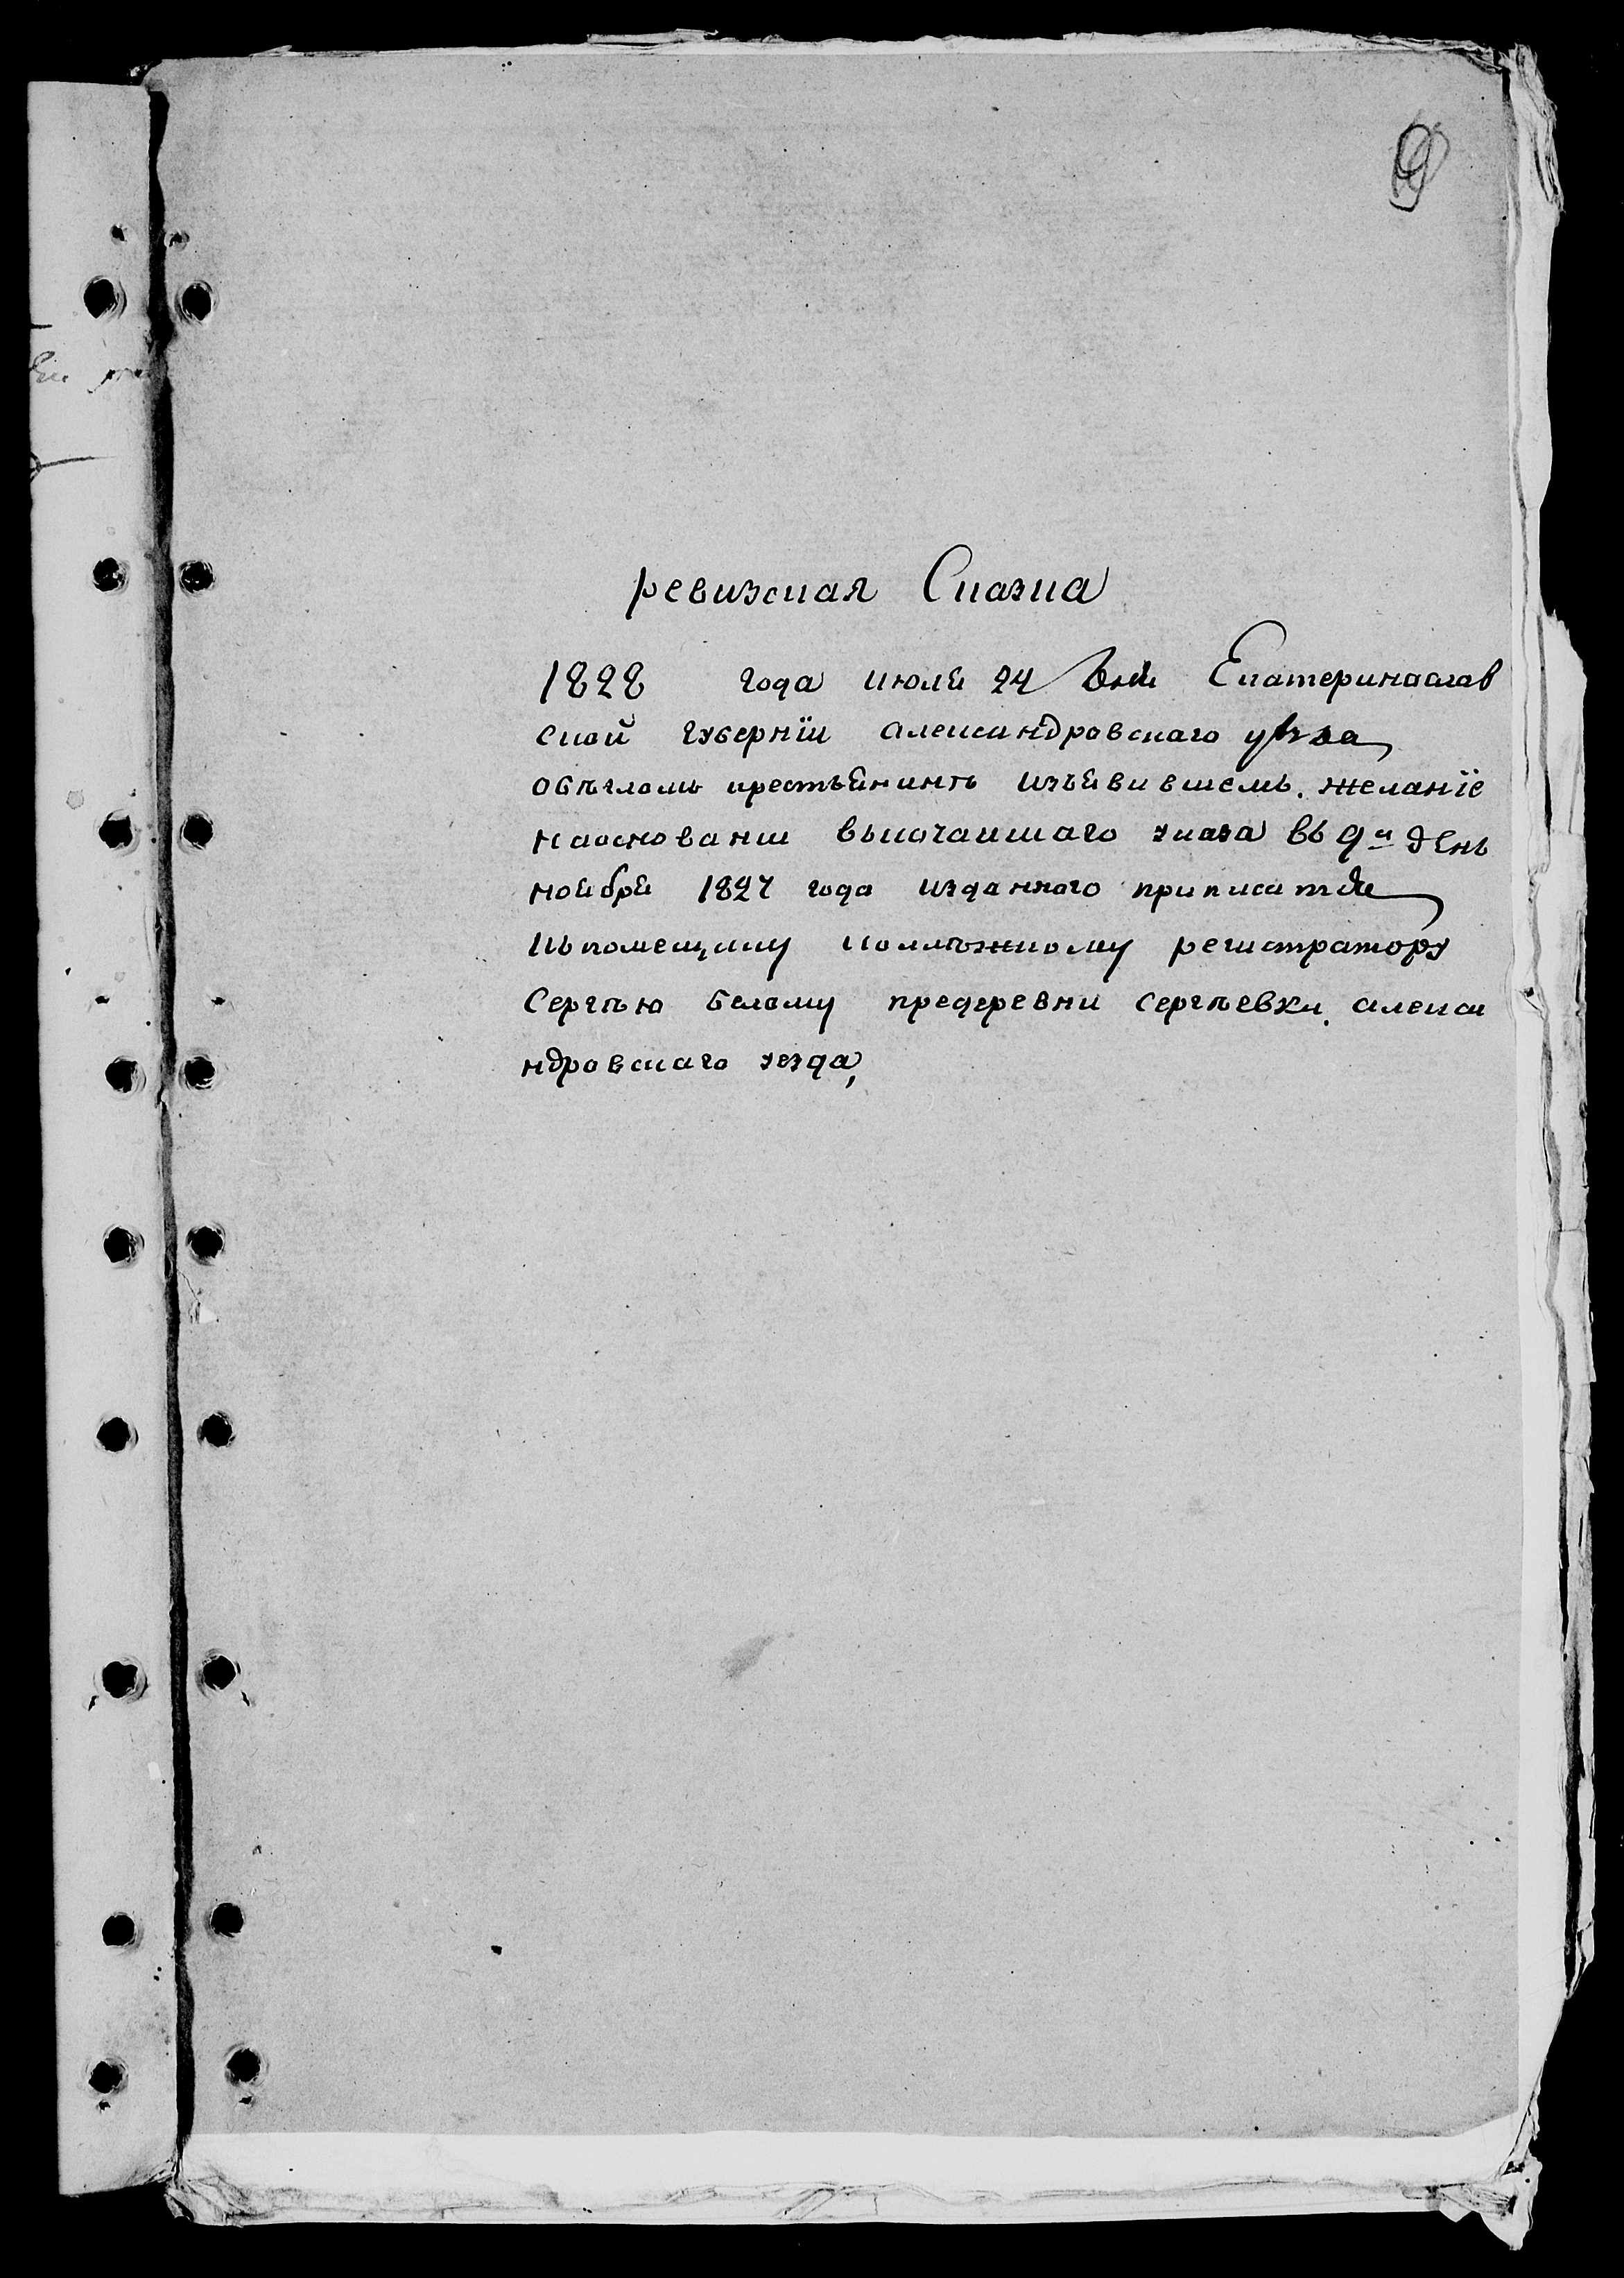 ревизская Сказка
1828 года июля 24 дня Екатеринаслав
ской губернїи александровскаго уѣзда
обѣгломъ крестьянинѣ изъявившемъ. желанїе
наоснования высочаишаго указа въ 9й день
ноября 1827 года изданнаго приписатся
къпомещику коллѣжкому регистратору
Сергѣю Белому придеревни Сергѣевки. алекса
ндровскаго уезда,